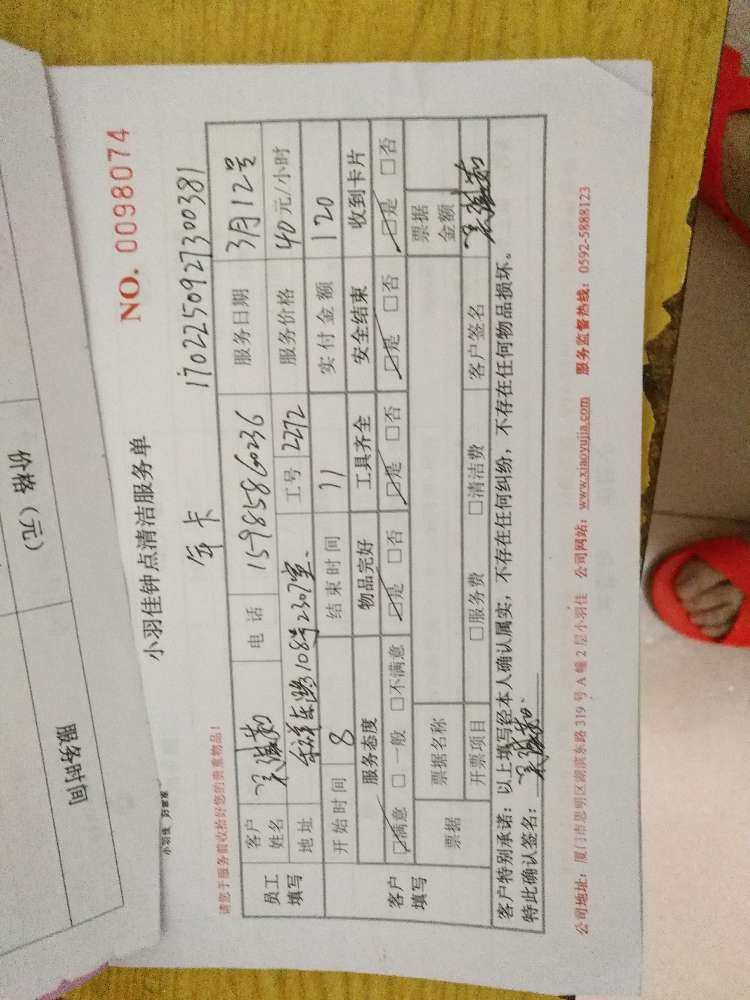 价格（元）
服务时间
小羽佳 好管家
小羽佳钟点清洁服务单
NO. 0098074
年卡 1702250927300381
请您于服务前收拾好您的贵重物品！
员工填写 客户姓名 电话 15985860236 服务日期 3月12号
地址 108号2307室、 工号 2272 服务价格 40元/小时
开始时间 8 结束时间 11 实付金额 120
客户填写 服务态度 物品完好 工具齐全 安全结束 收到卡片
☑满意 □一般 □不满意 ☑是 □否 ☑是 □否 ☑是 □否 ☑是 □否
票据 票据名称 票据金额
开票项目 □服务费 □清洁费 客户签名
客户特别承诺：以上填写经本人确认属实，不存在任何纠纷，不存在任何物品损坏。
特此确认签名：
公司地址：厦门市思明区湖滨东路319号A幢2层小羽佳 公司网站：www.xiaoyujia.com 服务监督热线：0592-5888123